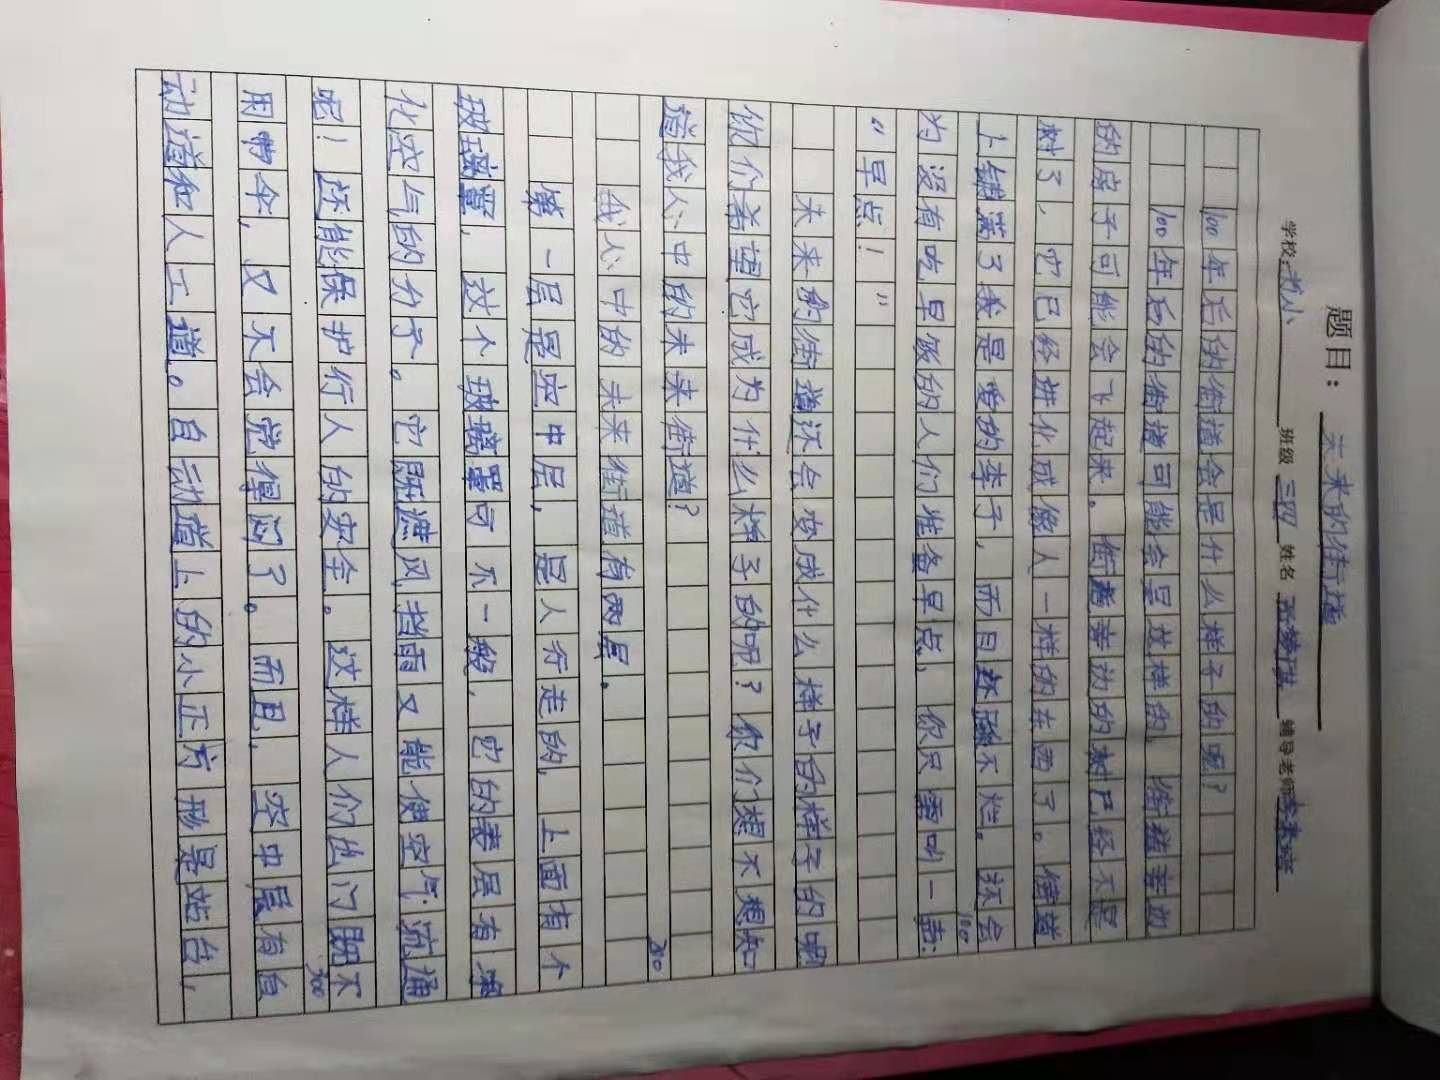 题目：未来的街道
学校：苏小 班级 三四 姓名 张 辅导老师
100年后的街道会是什么样子的呢？
100年后的街道可能会是这样的，街道旁边
的房子可能会飞起来。街道旁边的树已经不是
树了，它已经进化成像人一样的东西了。街道
上铺满了我最爱的李子，而且还不烂。还会
为没有吃早饭的人们准备早点，你只需叫一声：
“早点！”
未来的街道还会变成什么样子的样子的呢
你们希望它成为什么样子的呢？你们想不想知
道我心中的未来街道？
我心中的未来街道有两层。
第一层是空中层，是人行走的，上面有个
玻璃罩，这个玻璃罩可不一般，它的表层有净
化空气的分子。它既遮风挡雨又能使空气流通
呢！还能保护行人的安全。这样人们出门既不
用带伞，又不会觉得闷了。而且，空中层有自
动道和人工道。自动道上的小正方形是站台，
100
200
300